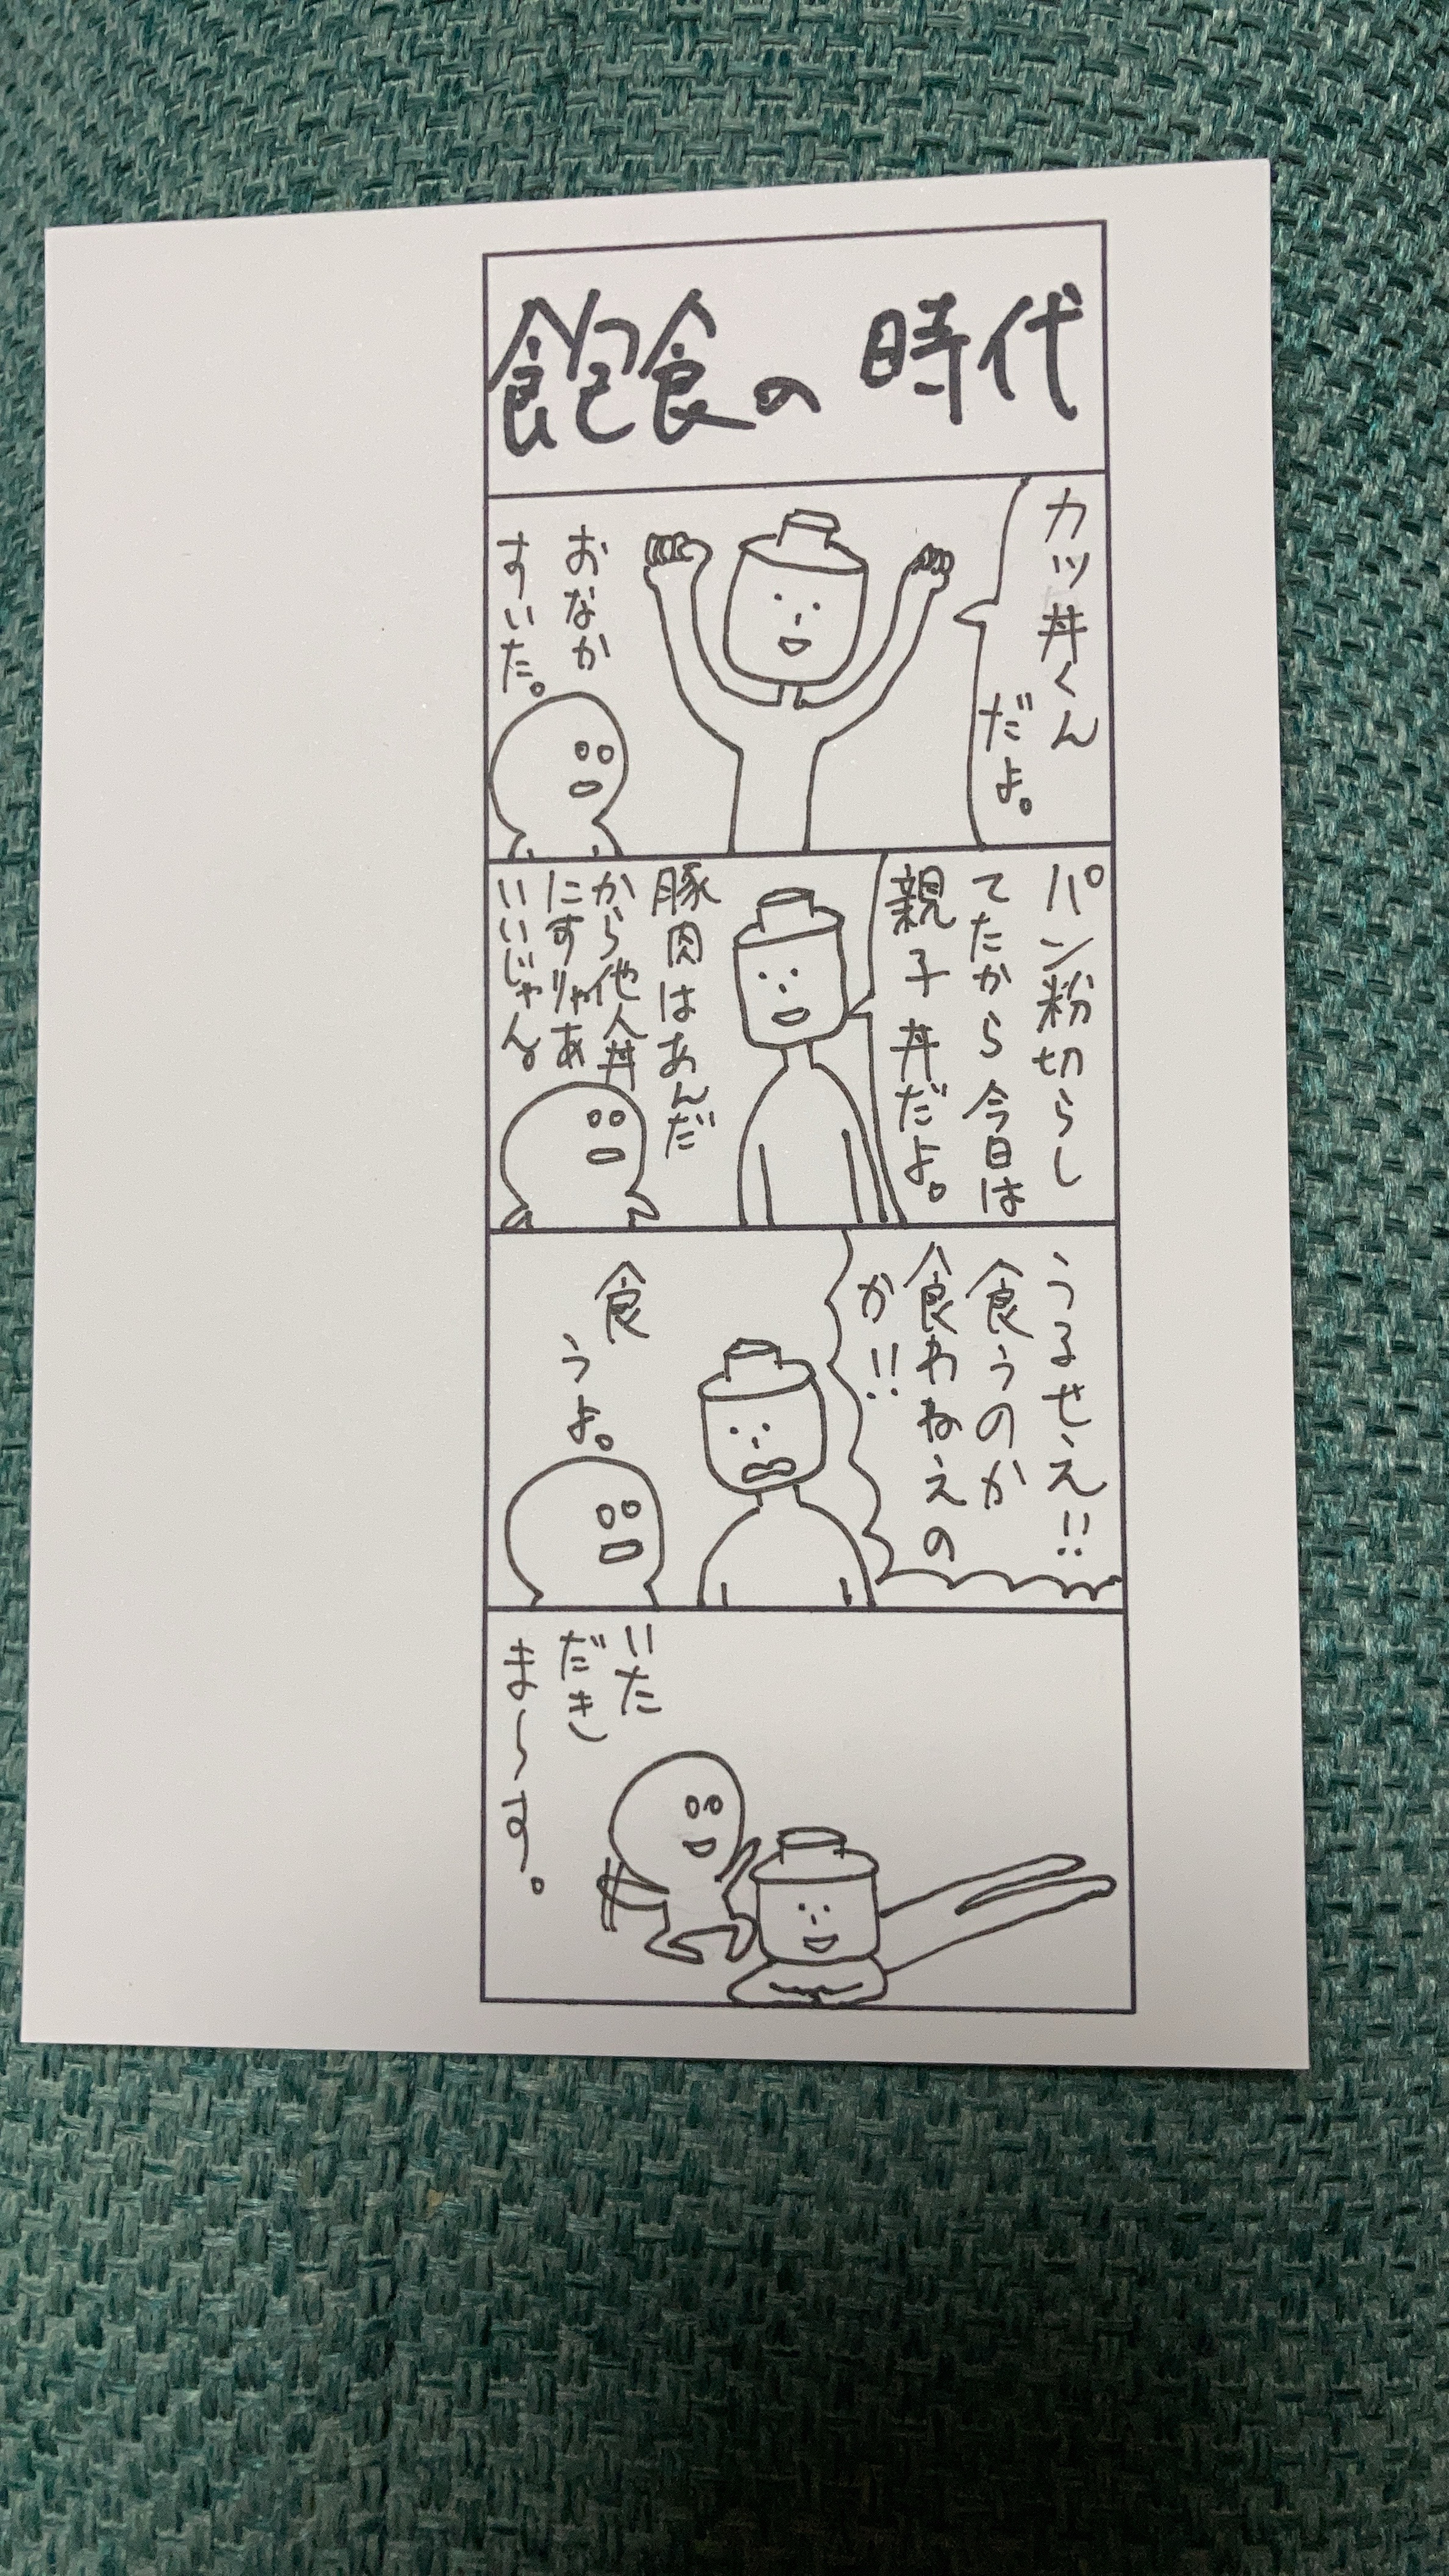 飽食の時代
カツ丼くん
だよ。
おなか
すいた。
パン粉切らし
てたから今日は
親子丼だよ。
豚肉はあんだ
から他人丼
にすりゃあ
いいじゃん。
うるせえ!!
食うのか
食わねえの
か!!
食
うよ。
いた
だき
ま〜す。